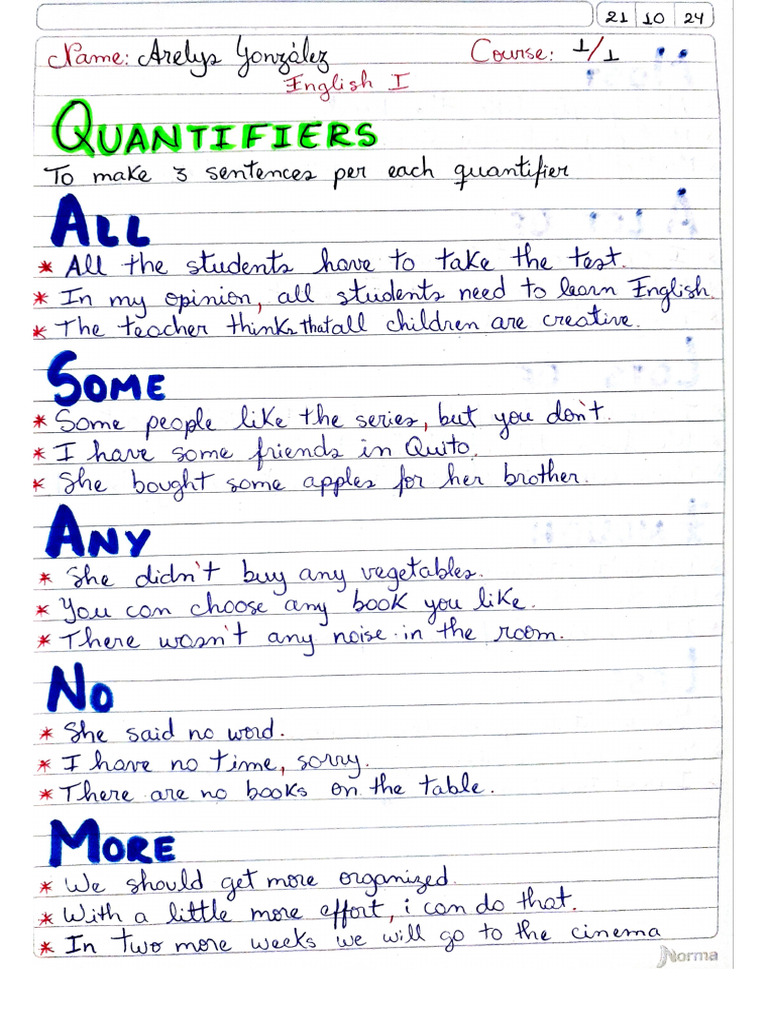 21 10 24
Name: Arelys González Course: 1/1
English I
QUANTIFIERS
To make 3 sentences per each quantifier
ALL
* All the students have to take the test.
* In my opinion, all students need to learn English.
* The teacher thinks that all children are creative.
SOME
* Some people like the series, but you don't.
* I have some friends in Quito.
* She bought some apples for her brother.
ANY
* She didn't buy any vegetables.
* You can choose any book you like.
* There wasn't any noise in the room.
NO
* She said no word.
* I have no time, sorry.
* There are no books on the table.
MORE
* We should get more organized.
* With a little more effort, i can do that.
* In two more weeks we will go to the cinema
Norma